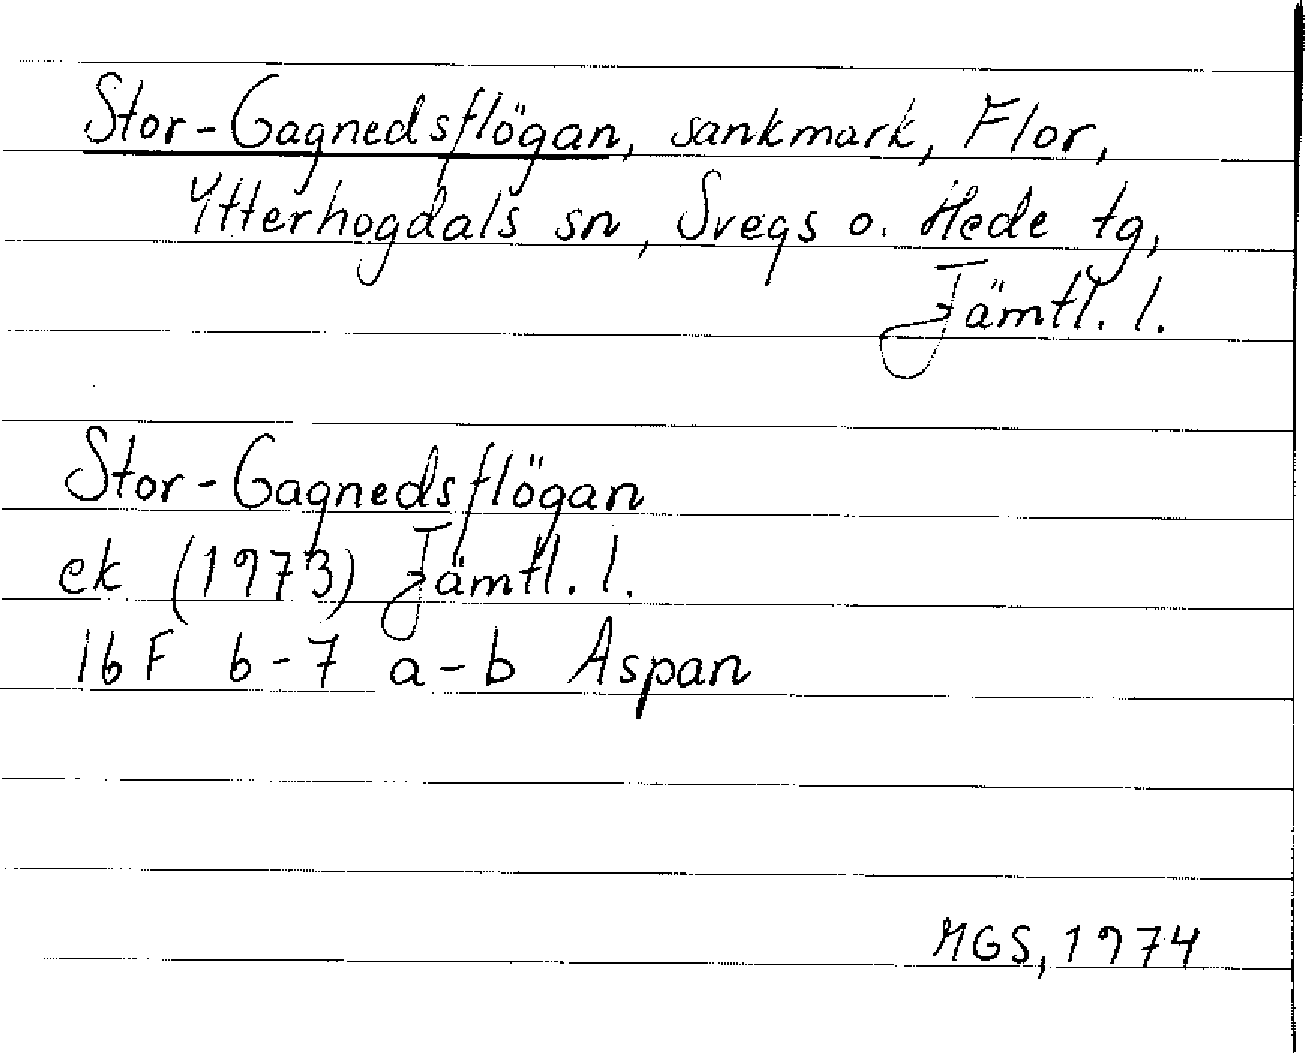 Stor-Gagnedsflögan, sankmark, Flor,
Ytterhogdals sn, Svegs o. Hede tg,
Jämtl. l.
Stor-Gagnedsflögan
ek (1973) Jämtl. l.
16F 6-7 a-b Aspan
MGS, 1974